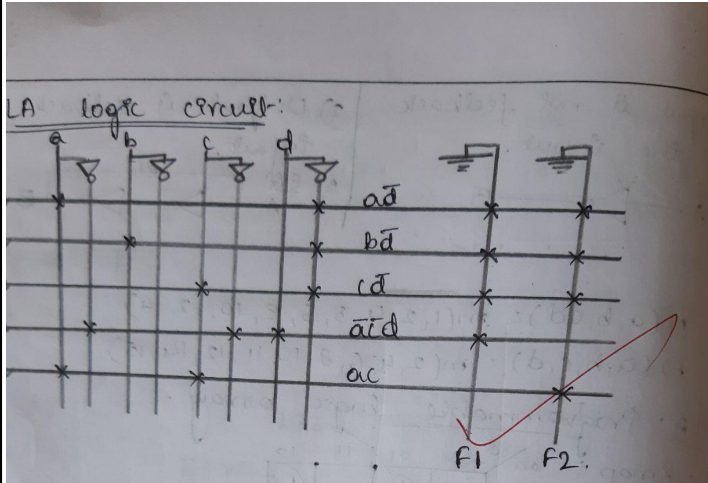 LA logic circuit:
a b c d
ad̅
bd̅
cd̅
a̅c̅d
ac
F1 F2.